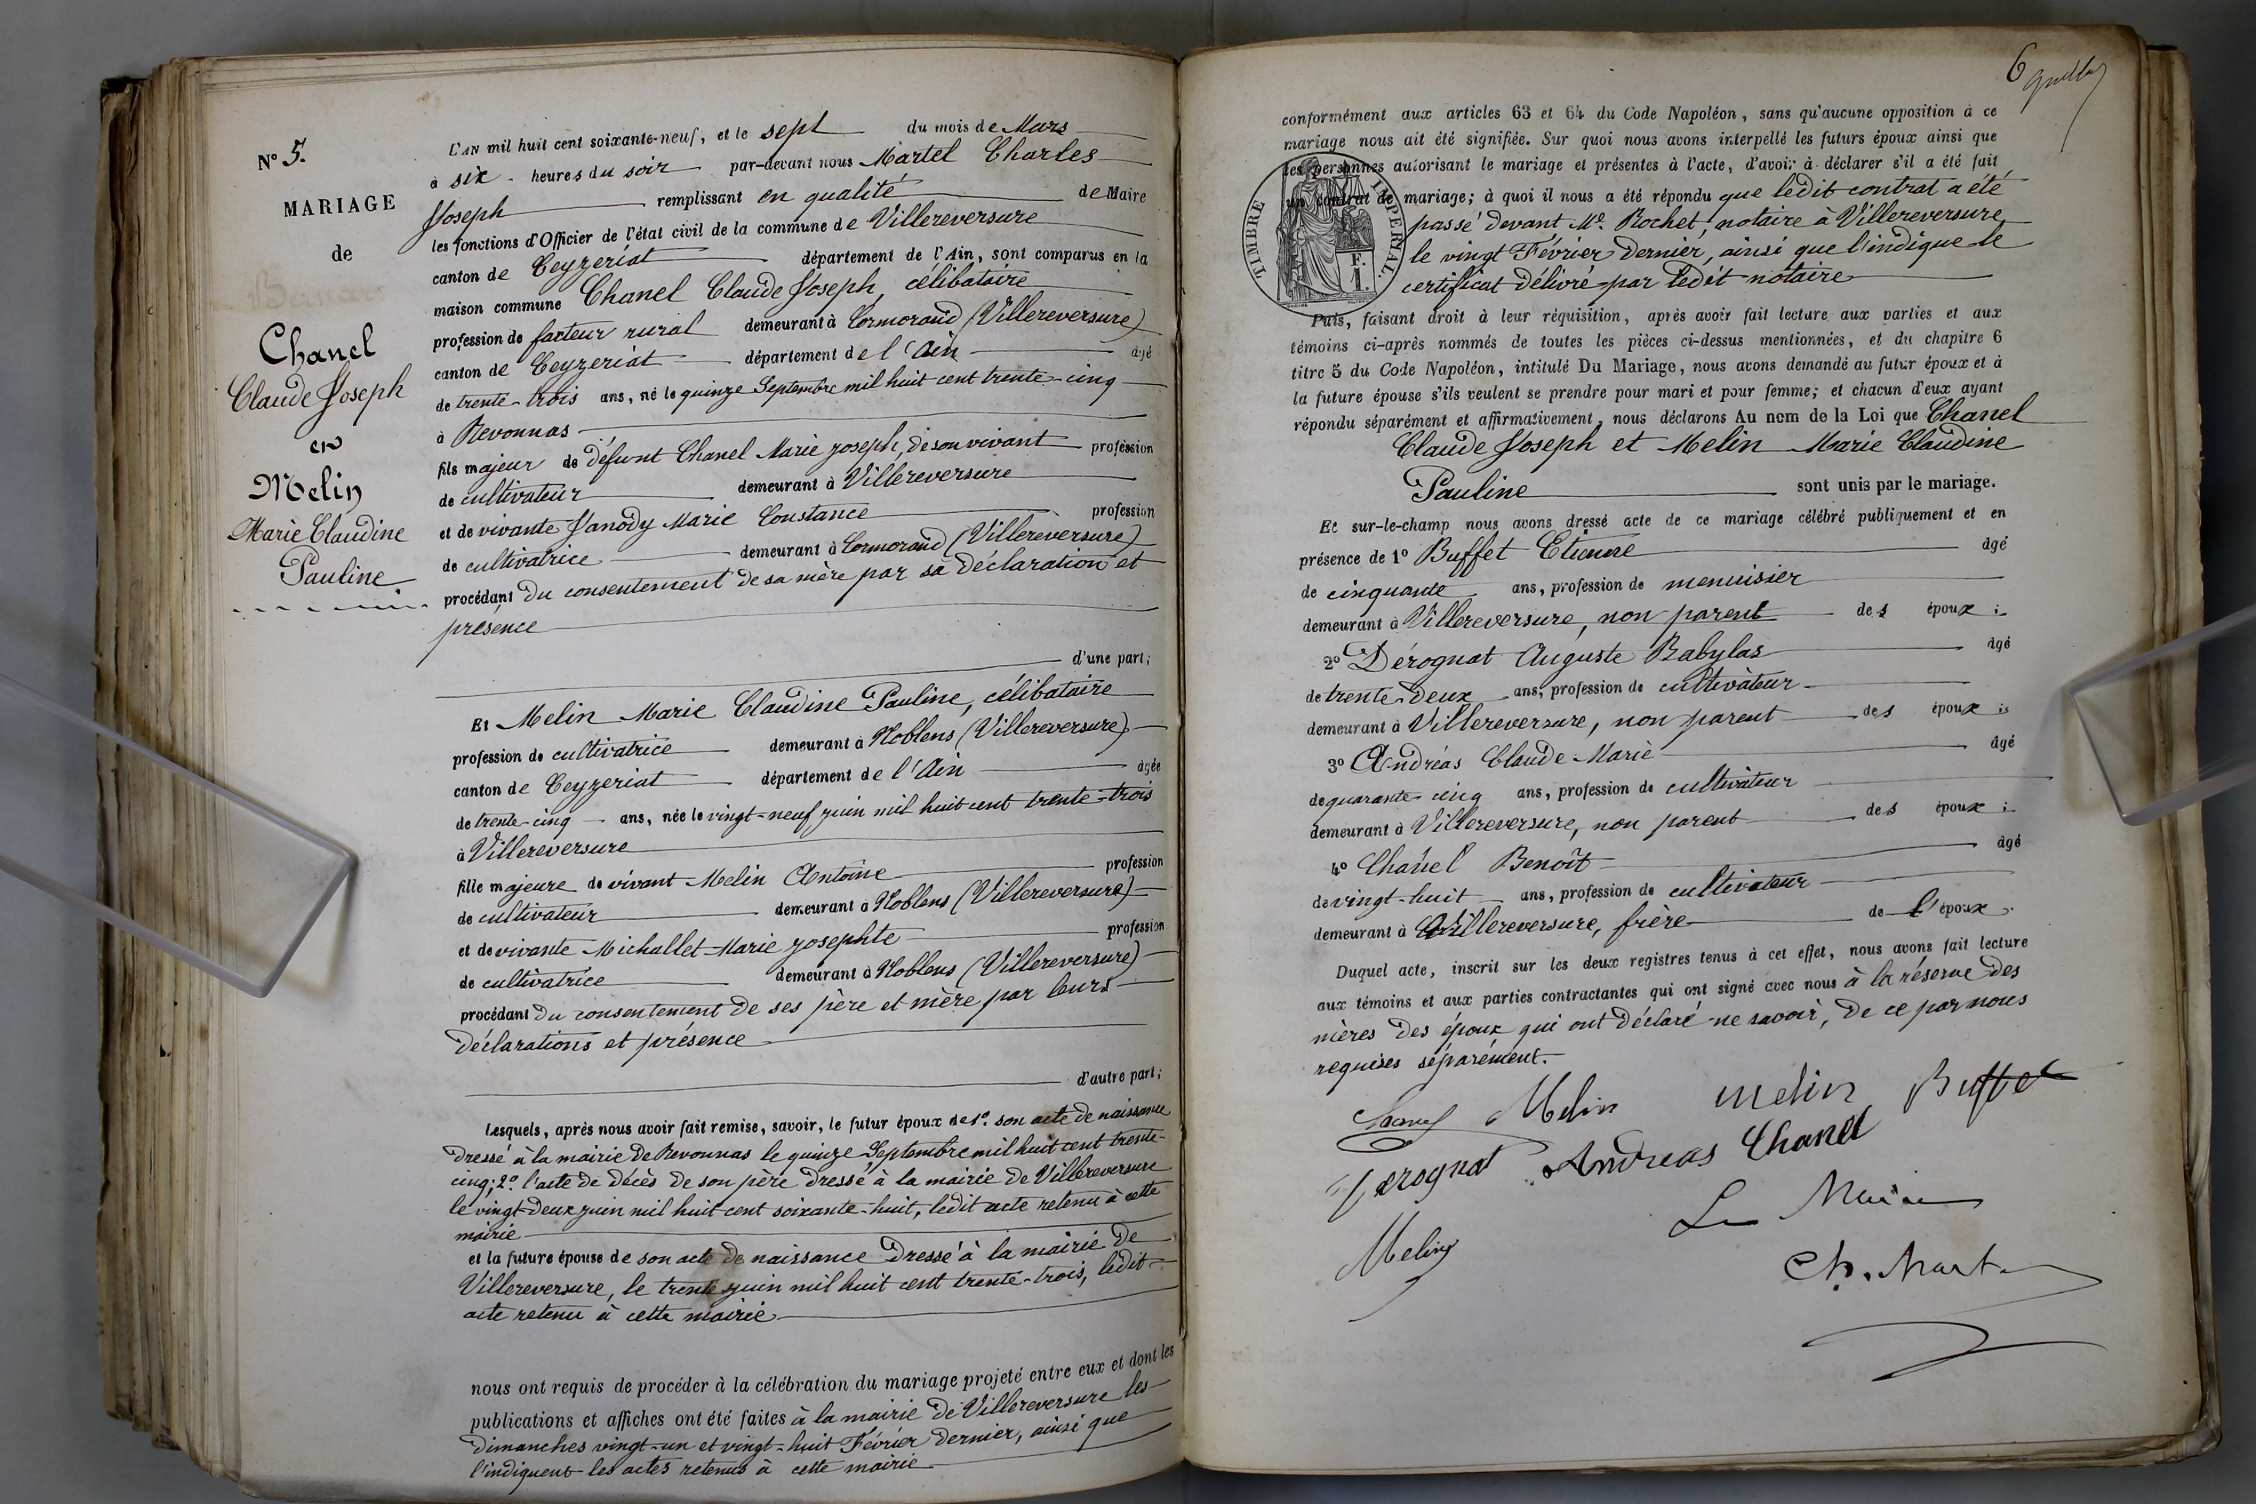 N° 5.
MARIAGE
de
Chanel
Claude Joseph
et
Melin
Marie Claudine
Pauline
L'AN mil huit cent soixante-neuf, et le sept du mois de Mars
à six heures du soir par-devant nous Martel Charles
Joseph remplissant en qualité de Maire
les fonctions d'Officier de l'état civil de la commune de Villereversure
canton de Ceyzeriat département de l'Ain, sont comparus en la
maison commune Chanel Claude Joseph, célibataire
profession de facteur rural demeurant à Cormoraud (Villereversure)
canton de Ceyzeriat département de l'Ain âgé
de trente-trois ans, né le quinze Septembre mil huit cent trente-cinq
à Revonnas
fils majeur de défunt Chanel Marie joseph, de son vivant profession
de cultivateur demeurant à Villereversure
et de vivante Janody Marie Constance profession
de cultivatrice demeurant à Cormoraud (Villereversure)
procédant du consentement de sa mère par sa déclaration et
présence
d'une part;
Et Melin Marie Claudine Pauline, célibataire
profession de cultivatrice demeurant à Noblens (Villereversure)
canton de Ceyzeriat département de l'Ain âgée
de trente-cinq ans, née le vingt-neuf juin mil huit cent trente-trois
à Villereversure
fille majeure de vivant Melin Antoine profession
de cultivateur demeurant à Noblens (Villereversure)
et de vivante Michallet Marie josephte profession
de cultivatrice demeurant à Noblens (Villereversure)
procédant du consentement de ses père et mère par leurs
déclarations et présence
d'autre part;
Lesquels, après nous avoir fait remise, savoir, le futur époux de 1°. son acte de naissance
dressé à la mairie de Revonnas le quinze Septembre mil huit cent trente-
cinq; 2°. l'acte de décès de son père dressé à la mairie de Villereversure
le vingt-deux juin mil huit cent soixante-huit, ledit acte retenu à cette
mairie
et la future épouse de son acte de naissance dressé à la mairie de
Villereversure, le trente juin mil huit cent trente-trois, ledit
acte retenu à cette mairie
nous ont requis de procéder à la célébration du mariage projeté entre eux et dont les
publications et affiches ont été faites à la mairie de Villereversure les
dimanches vingt-un et vingt-huit Février dernier, ainsi que
l'indiquent les actes retenus à cette mairie
6
conformément aux articles 63 et 64 du Code Napoléon, sans qu'aucune opposition à ce
mariage nous ait été signifiée. Sur quoi nous avons interpellé les futurs époux ainsi que
les personnes autorisant le mariage et présentes à l'acte, d'avoir à déclarer s'il a été fait
un contrat de mariage; à quoi il nous a été répondu que ledit contrat a été
passé devant Me. Rochet, notaire à Villereversure,
le vingt Février dernier, ainsi que l'indique le
certificat délivré par ledit notaire
TIMBRE IMPERIAL.
F.
1.
Puis, faisant droit à leur réquisition, après avoir fait lecture aux parties et aux
témoins ci-après nommés de toutes les pièces ci-dessus mentionnées, et du chapitre 6
titre 5 du Code Napoléon, intitulé Du Mariage, nous avons demandé au futur époux et à
la future épouse s'ils veulent se prendre pour mari et pour femme; et chacun d'eux ayant
répondu séparément et affirmativement, nous déclarons Au nom de la Loi que Chanel
Claude Joseph et Melin Marie Claudine
Pauline sont unis par le mariage.
Et sur-le-champ nous avons dressé acte de ce mariage célébré publiquement et en
présence de 1° Buffet Etienne âgé
de cinquante ans, profession de menuisier
demeurant à Villereversure, non parent des époux;
2° Dérognat Auguste Babylas âgé
de trente-deux ans, profession de cultivateur
demeurant à Villereversure, non parent des époux;
3° Andréas Claude Marie âgé
de quarante-cinq ans, profession de cultivateur
demeurant à Villereversure, non parent des époux;
4° Chanel Benoît âgé
de vingt-huit ans, profession de cultivateur
demeurant à Villereversure, frère de l'époux.
Duquel acte, inscrit sur les deux registres tenus à cet effet, nous avons fait lecture
aux témoins et aux parties contractantes qui ont signé avec nous à la réserve des
mères des époux qui ont déclaré ne savoir, de ce par nous
requises séparément.
Chanel Melin Melin Buffet
Derognat Andreas Chanel
Le Maire
Melin
Ch. Martel